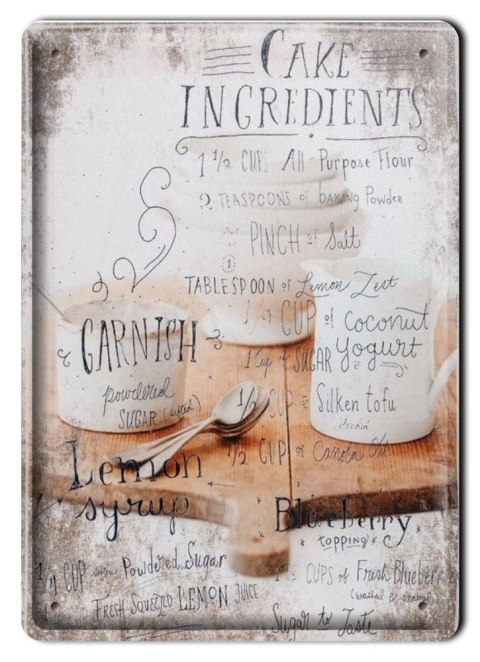 CAKE
INGREDIENTS
1 1/2 CUPS All-Purpose Flour
2 TEASPOONS of baking Powder
PINCH of Salt
1
TABLESPOON of Lemon Zest
1/2 CUP of coconut
Yogurt
1 Cup of SUGAR
1/2 CUP of Silken tofu
1/2 CUP of Canola Oil
GARNISH
powdered
SUGAR (sifted)
Lemon
syrup
1/2 CUP Powdered Sugar
FRESH SQUEEZED LEMON JUICE
Blueberry
topping
CUPS of Fresh Blueber
(washed &
Sugar to Taste